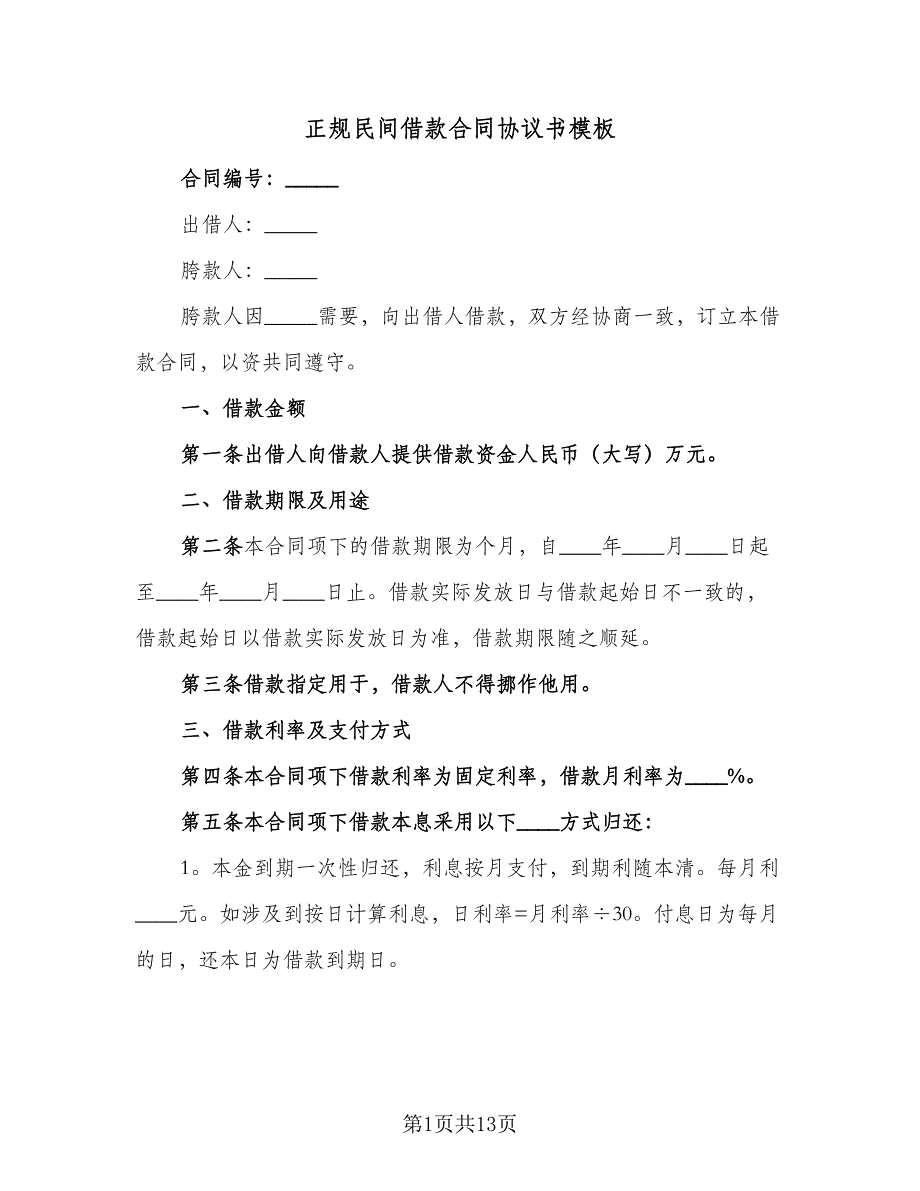 正规民间借款合同协议书模板
合同编号：_____
出借人：_____
胯款人：_____
胯款人因_____需要，向出借人借款，双方经协商一致，订立本借
款合同，以资共同遵守。
一、借款金额
第一条出借人向借款人提供借款资金人民币（大写）万元。
二、借款期限及用途
第二条本合同项下的借款期限为个月，自____年____月____日起
至____年____月____日止。借款实际发放日与借款起始日不一致的，
借款起始日以借款实际发放日为准，借款期限随之顺延。
第三条借款指定用于，借款人不得挪作他用。
三、借款利率及支付方式
第四条本合同项下借款利率为固定利率，借款月利率为____%。
第五条本合同项下借款本息采用以下____方式归还：
1。本金到期一次性归还，利息按月支付，到期利随本清。每月利
____元。如涉及到按日计算利息，日利率=月利率÷30。付息日为每月
的日，还本日为借款到期日。
第1页共13页